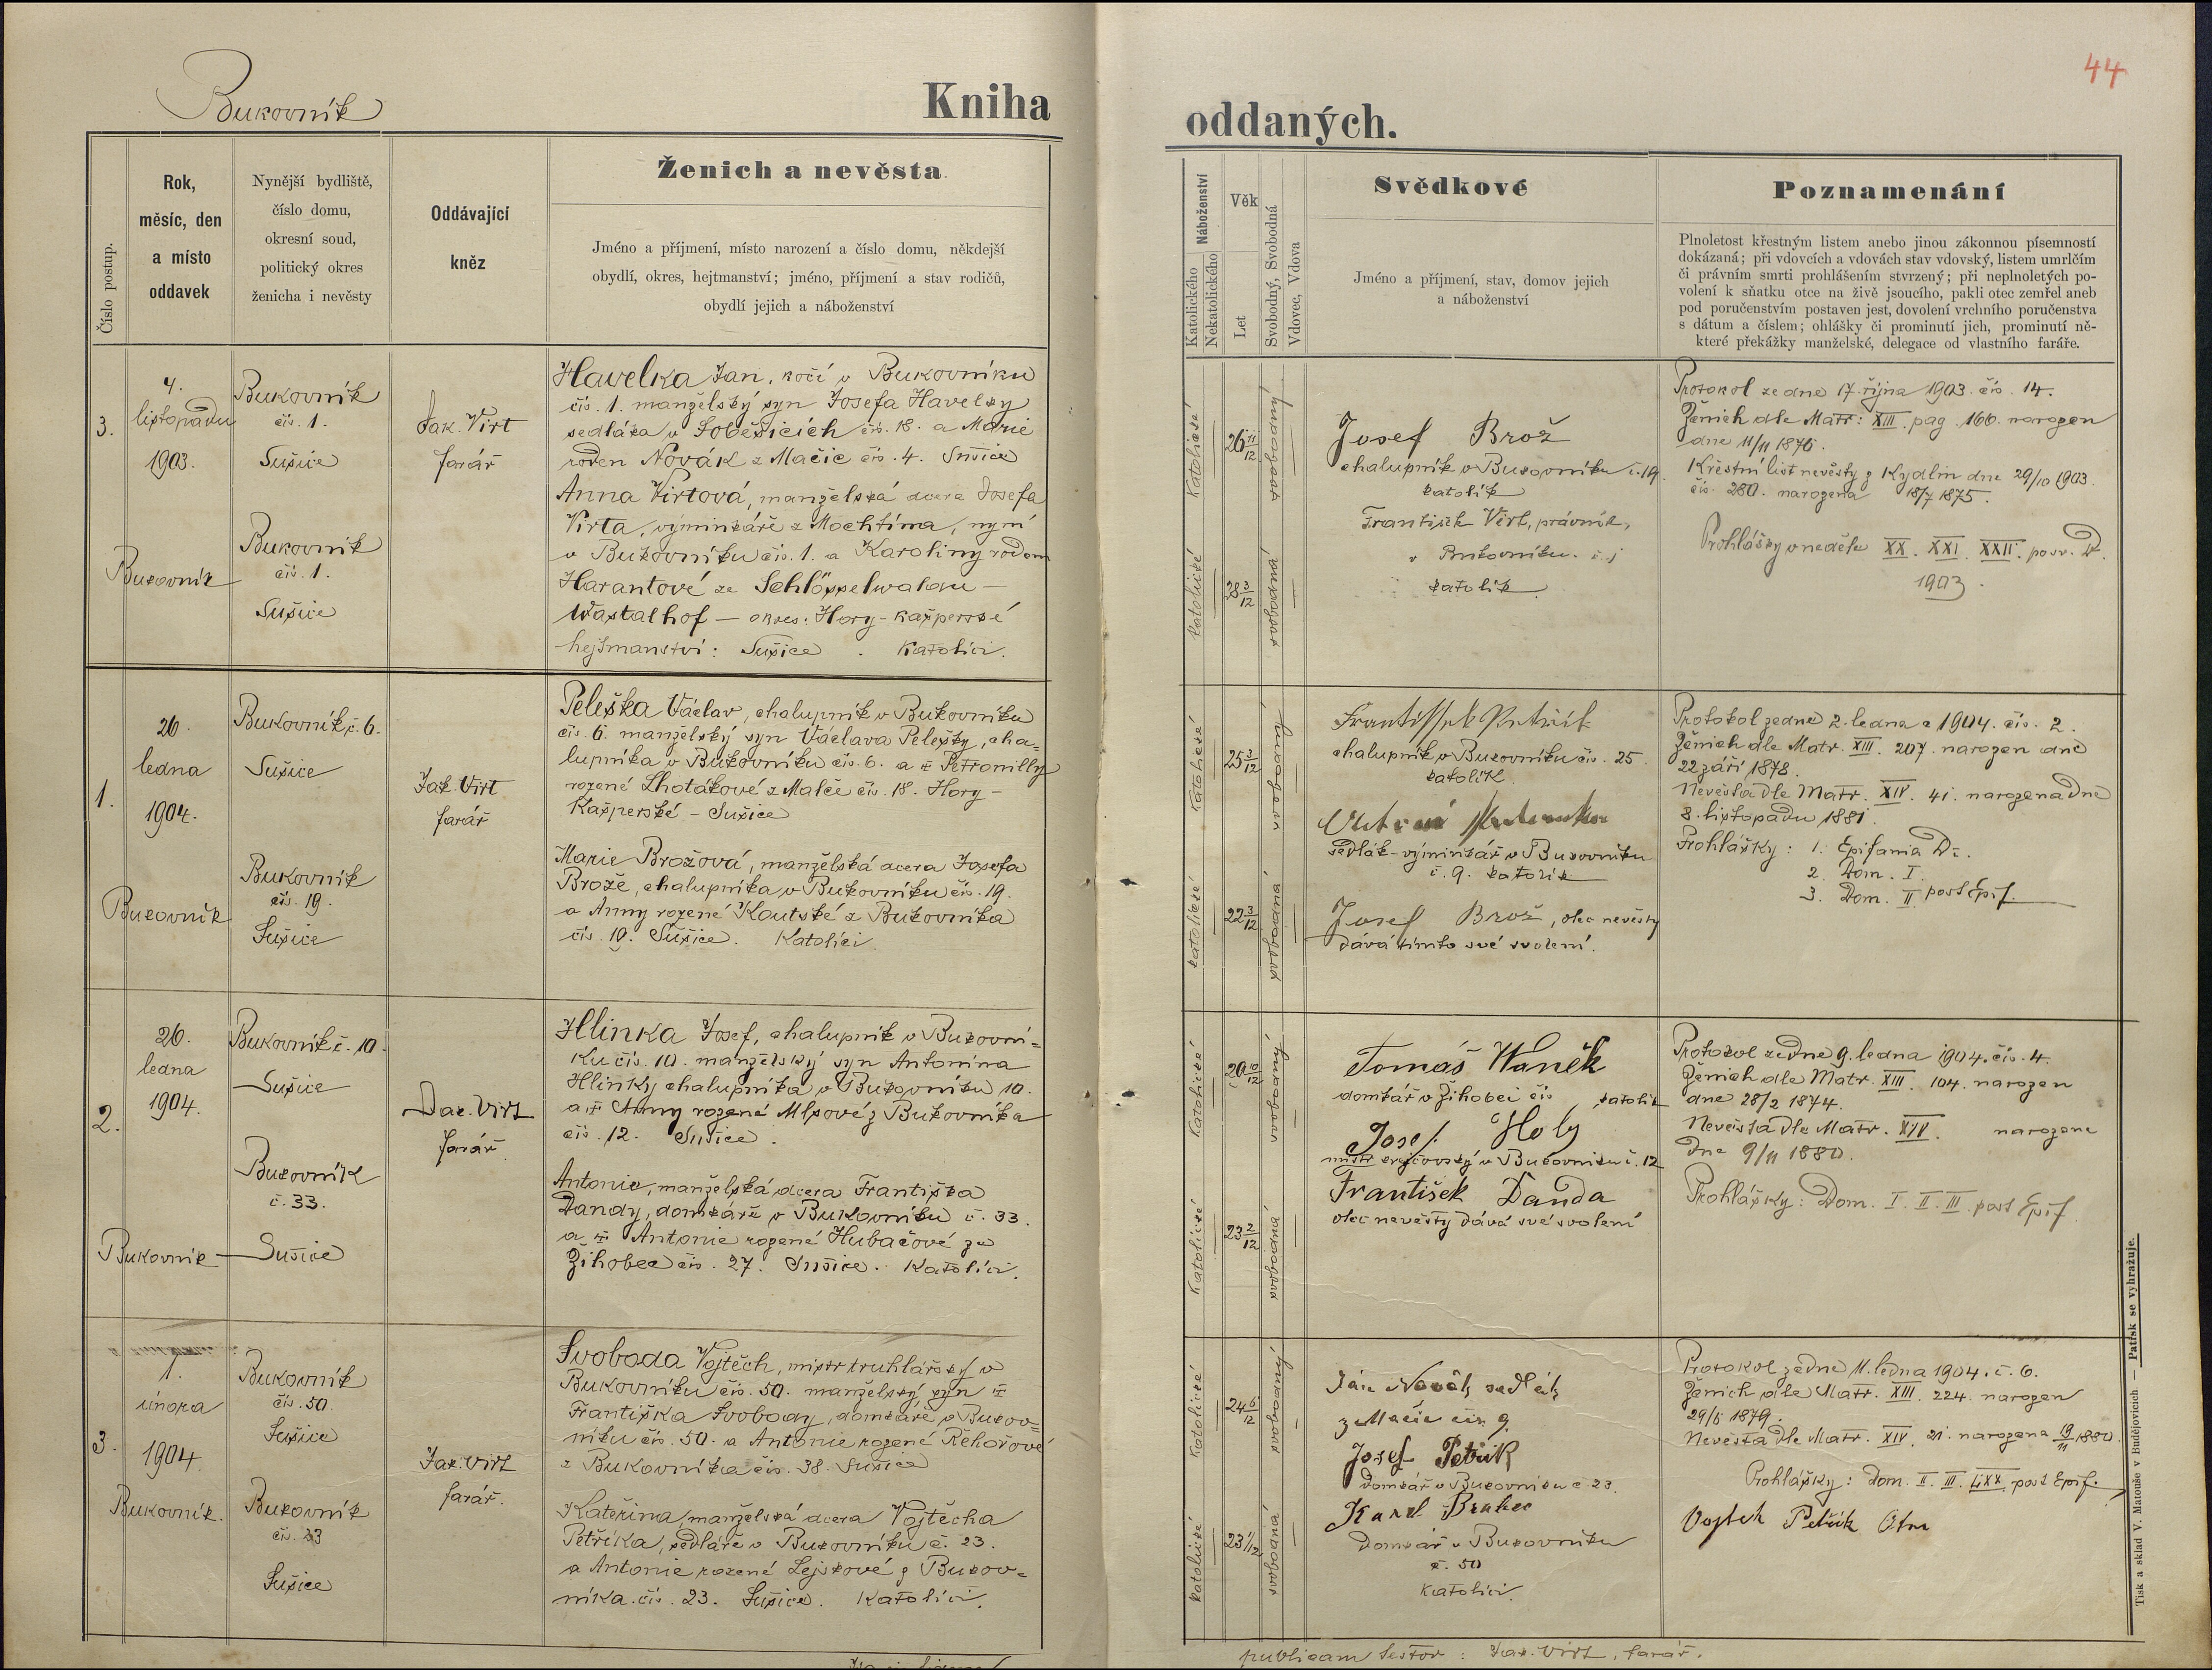 44
Bukovník
Kniha oddaných.
Číslo postup.
Rok,
měsíc, den
a místo
oddavek
Nynější bydliště,
číslo domu,
okresní soud,
politický okres
ženicha i nevěsty
Oddávající
kněz
Ženich a nevěsta.
Jméno a příjmení, místo narození a číslo domu, někdejší
obydlí, okres, hejtmanství; jméno, příjmení a stav rodičů,
obydlí jejich a náboženství
Náboženství
Katolického
Nekatolického
Věk
Let
Svobodný, Svobodná
Vdovec, Vdova
Svědkové
Jméno a příjmení, stav, domov jejich
a náboženství
Poznamenání
Plnoletost křestným listem anebo jinou zákonnou písemností
dokázaná; při vdovcích a vdovách stav vdovský, listem umrlčím
či právním smrti prohlášením stvrzený; při neplnoletých po-
volení k sňatku otce na živě jsoucího, pakli otec zemřel aneb
pod poručenstvím postaven jest, dovolení vrchního poručenstva
s dátum a číslem; ohlášky či prominutí jich, prominutí ně-
které překážky manželské, delegace od vlastního faráře.
3.
4.
listopadu
1903.
Bukovník
Bukovník
čís. 1.
Sušice
Bukovník
čís. 1.
Sušice
Jak. Virt
farář
Havelka Jan, kočí v Bukovníku
čís. 1. manželský syn Josefa Havelky
sedláka v Soběšicích čís. 18. a Marie
roden Novák z Mačic čís. 4. Sušice
Anna Virtová, manželská dcera Josefa
Virta, výminkáře z Mochtína, nyní
v Bukovníku čís. 1. a Karoliny rodom
Harantové ze Schlösselwaldu –
Wastalhof – okres: Hory-kašperské
hejtmanství: Sušice. Katolíci.
katolické
26 11/12
svobodný
katolické
28 3/12
svobodná
Josef Brož
chalupník v Bukovníku č. 19.
katolík
František Virt, právník,
v Bukovníku č. 1
katolík
Protokol ze dne 17. října 1903. čís. 14.
Ženich dle Matr: XIII. pag. 166. narozen
dne 11/11 1876.
Křestní list nevěsty z Kydlin dne 29/10 1903.
čís. 280. narozena 18/7 1875.
Prohlášky v neděle XX. XXI. XXII. po sv. D.
1903.
1.
26.
ledna
1904.
Bukovník
Bukovník č. 6.
Sušice
Bukovník
čís. 19.
Sušice
Jak. Virt
farář
Peleška Václav, chalupník v Bukovníku
čís. 6. manželský syn Václava Pelešky, cha=
lupníka v Bukovníku čís. 6. a Petronilly
rozené Lhotákové z Malče čís. 18. Hory-
Kašperské – Sušice
Marie Brožová, manželská dcera Josefa
Brože, chalupníka v Bukovníku čís. 19.
a Anny rozené Koutské z Bukovníka
čís. 19. Sušice. Katolíci.
katolické
25 3/12
svobodný
katolické
22 3/12
svobodná
chalupník v Bukovníku čís. 25.
katolík.
sedlák-výminkář v Bukovníku
č. 9. katolík
Josef Brož, otec nevěsty
dává tímto své svolení.
Protokol ze dne 2. ledna 1904. čís. 2.
Ženich dle Matr. XIII. 207. narozen dne
22 září 1878.
Nevěsta dle Matr. XIV. 41. narozena dne
3. listopadu 1881.
Prohlášky: 1. Epifania D.
2. Dom. I.
3. Dom. II. post Epif.
2.
26.
ledna
1904.
Bukovník
Bukovník č. 10.
Sušice
Bukovník
č. 33.
Sušice
Jak. Virt
farář
Hlinka Josef, chalupník v Bukovní=
ku čís. 10. manželský syn Antonína
Hlinky chalupníka v Bukovníku 10.
a Anny rozené Mlsové z Bukovníka
čís. 12. Sušice.
Antonie, manželská dcera Františka
Dandy, domkáře v Bukovníku č. 33.
a Antonie rozené Hubačové ze
Žihobec čís. 27. Sušice. Katolíci.
katolické
svobodný
katolické
23 2/12
svobodná
Tomáš Waněk
domkář v Žihobci čís katolík
Josef Holy
mistr krejčovský v Bukovníku č. 12
František Danda
otec nevěsty dává své svolení
Protokol ze dne 9. ledna 1904. čís. 4.
Ženich dle Matr. XIII. 104. narozen
dne 28/2 1874.
Nevěsta dle Matr. XIV. narozena
dne 9/11 1880.
Prohlášky: Dom. I. II. III. post Epif.
3.
1.
února
1904
Bukovník.
Bukovník
čís. 50.
Sušice
Bukovník
čís. 23
Sušice
Jak. Virt
farář.
Svoboda Vojtěch, mistr truhlářský v
Bukovníku čís. 50. manželský syn
Františka Svobody, domkáře v Bukov=
níku čís. 50. a Antonie rozené Řehořové
z Bukovníka čís. 38. Sušice
Kateřina, manželská dcera Vojtěcha
Petříka, sedláře v Bukovníku č. 23.
a Antonie rozené Lejskové z Bukov=
níka čís. 23. Sušice. Katolíci.
katolické
24 6/12
svobodný
katolické
23 1/12
svobodná
Jan Novák sedlák
z Mačic čís 9.
Josef Petřík
domkář v Bukovníku č 23.
Karel Brabec
Domkář v Bukovníku
č. 50
katolíci.
Protokol ze dne 11. ledna 1904. č. 6.
Ženich dle Matr. XIII. 224. narozen
29/5 1879.
Nevěsta dle Matr. XIV. 21. narozena 19/11 1880
Prohlášky: Dom. II. III. LXX. post Epif.
Vojtěch Petřík Otec
publicam testor: Jak. Virt, farář.
Tisk a sklad V. Matouše v Budějovicích. — Patisk se vyhražuje.